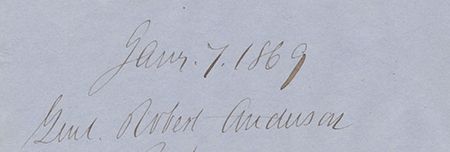 Janr. 7. 1869
Genl. Robert Anderson